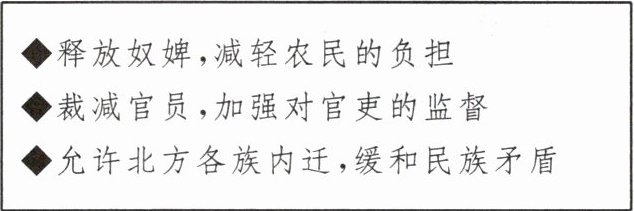 ◆释放奴婢,减轻农民的负担
◆裁减官员,加强对官吏的监督
◆允许北方各族内迁,缓和民族矛盾